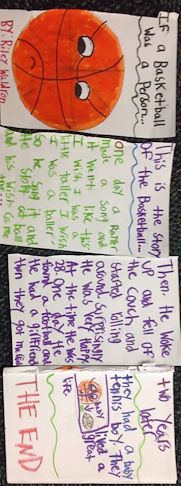 If a Basketball
Was a Person...
BY: Riley Waldron
This is the story
of the Basketball...
One day a Rapper
made a song and
it went like this
I wish I was a
little taller I wish
I was a baller
So he sung it and
the spirit of ball
and his wish came
Then, He woke
up and fell of
the couch and
started rolling
around surprisingly
He was very happy
At the time He was
28. One day He
found a football and
He had a girlfriend
then they got married
two years
later
they had a baby
tennis boy. They
lived a
great
life
THE END